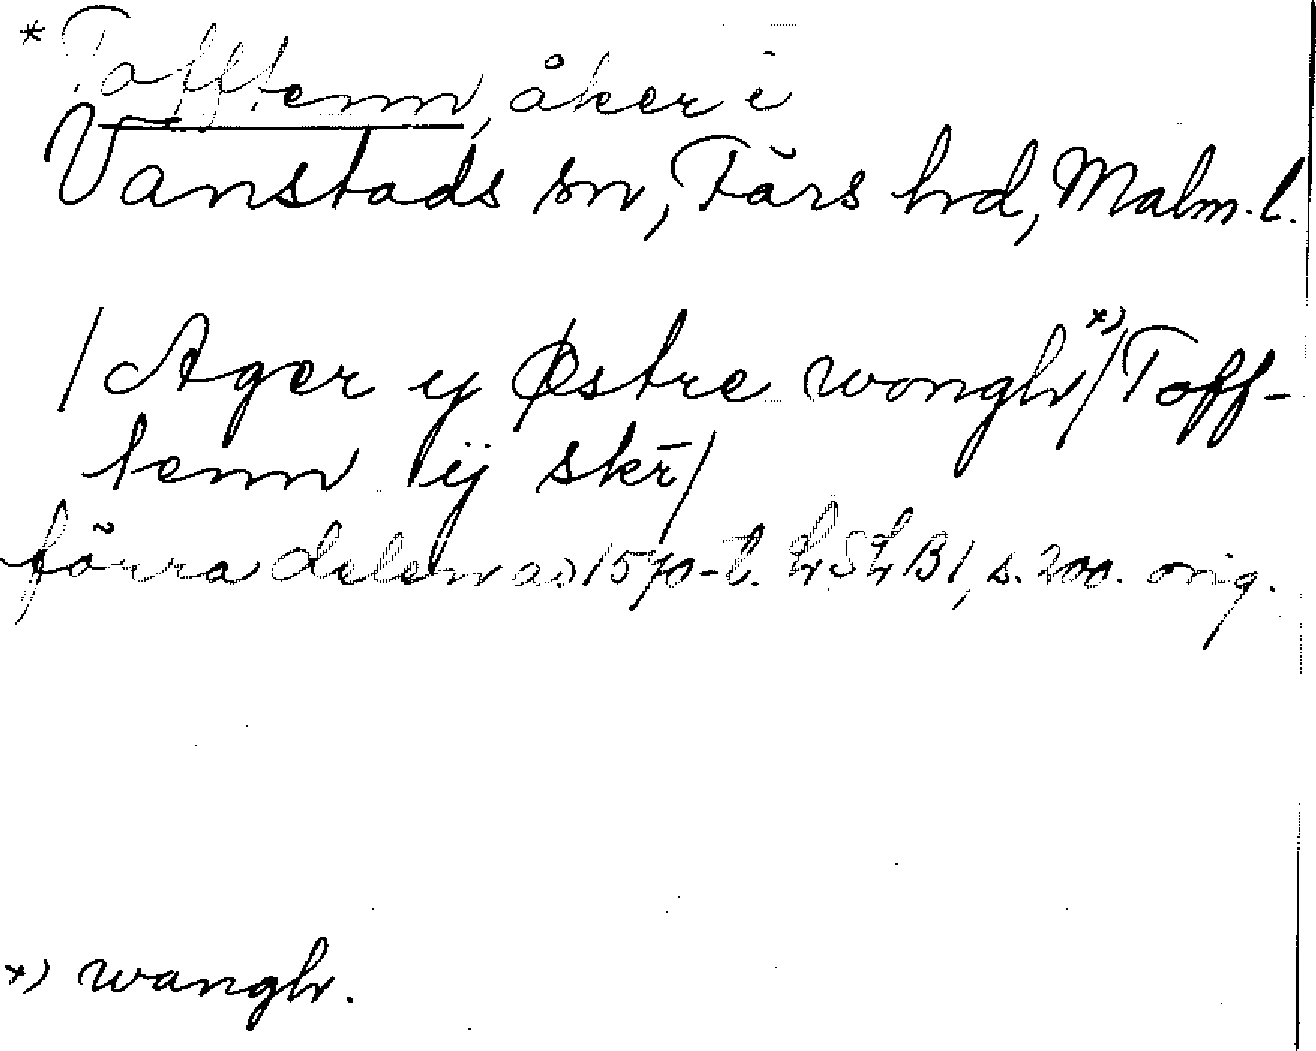 * Tofftenn, åker i
Vanstads sn, Färs hd, Malm. l.
/Ager y Østre wongh*)/ Toff-
tenn ij skr̄/
förra delen av 1570-t. LSLB1, s. 200. orig.
*) wangh.